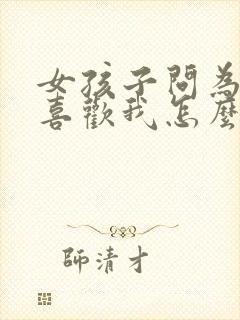 女孩子問為
喜歡我怎麼
師清才